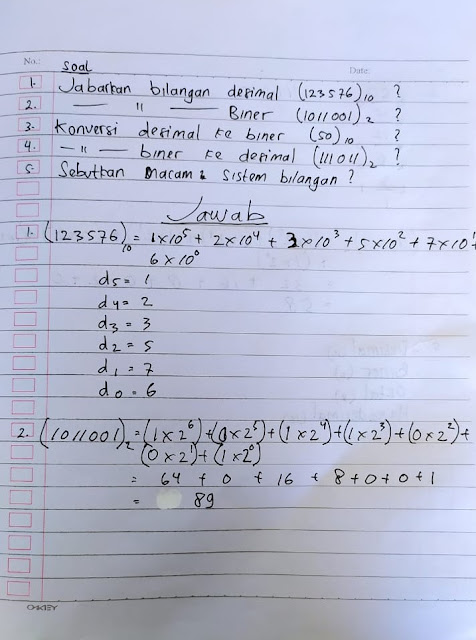 No.: Soal Date:
1. Jabarkan bilangan desimal (123576)10 ?
2. — " — Biner (1011001)2 ?
3. Konversi desimal ke biner (50)10 ?
4. — " — biner ke desimal (111011)2 ?
5. Sebutkan Macam2 Sistem bilangan ?
Jawab
1. (123576)10 = 1x10⁵ + 2x10⁴ + 3x10³ + 5x10² + 7x10¹ +
6x10⁰
d5 = 1
d4 = 2
d3 = 3
d2 = 5
d1 = 7
d0 = 6
2. (1011001)2 = (1x2⁶)+(0x2⁵)+(1x2⁴)+(1x2³)+(0x2²)+
(0x2¹)+(1x2⁰)
= 64 + 0 + 16 + 8+0+0+1
= 89